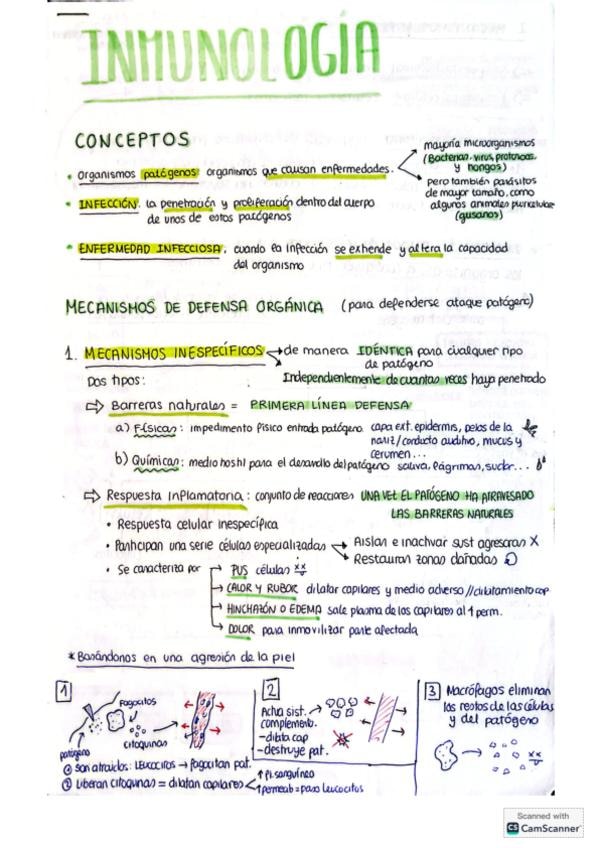 INMUNOLOGÍA
CONCEPTOS
• Organismos patógenos organismos que causan enfermedades.
mayoría microorganismos
(Bacterias, virus, protozoos,
y hongos)
Pero también parásitos
de mayor tamaño, como
algunos animales pluricelular
(gusanos)
• INFECCIÓN: la penetración y proliferación dentro del cuerpo
de unos de estos patógenos
• ENFERMEDAD INFECCIOSA: cuando la infección se extiende y altera la capacidad
del organismo
MECANISMOS DE DEFENSA ORGÁNICA (para defenderse ataque patógeno)
1. MECANISMOS INESPECÍFICOS → de manera IDÉNTICA para cualquier tipo
de patógeno
Independientemente de cuantas veces haya penetrado
Dos tipos:
⇨ Barreras naturales = PRIMERA LÍNEA DEFENSA
a) Físicas: impedimento físico entrada patógeno capa ext. epidermis, pelos de la
nariz/conducto auditivo, mucus y
cerumen...
b) Químicas: medio hostil para el desarrollo del patógeno saliva, lágrimas, sudor...
⇨ Respuesta inflamatoria: conjunto de reacciones UNA VEZ EL PATÓGENO HA ATRAVESADO
LAS BARRERAS NATURALES
• Respuesta celular inespecífica
• Participan una serie células especializadas → Aislan e inactivar sust agresoras X
→ Restauran zonas dañadas
• Se caracteriza por → PUS células
→ CALOR Y RUBOR dilatar capilares y medio adverso //
→ HINCHAZÓN O EDEMA sale plasma de los capilares al ↑ perm.
→ DOLOR para inmovilizar parte afectada
* Basándonos en una agresión de la piel
1
fagocitos
patógeno
citoquinas
① Son atraídos: LEUCOCITOS → fagocitan pat.
② Liberan citoquinas = dilatan capilares
↑ fl. sanguíneo
↑ permeab = paso leucocitos
2
Actúa sist.
complemento.
- dilata cap
- destruye pat.
3 Macrófagos eliminan
los restos de las células
y del patógeno
Scanned with
CS CamScanner